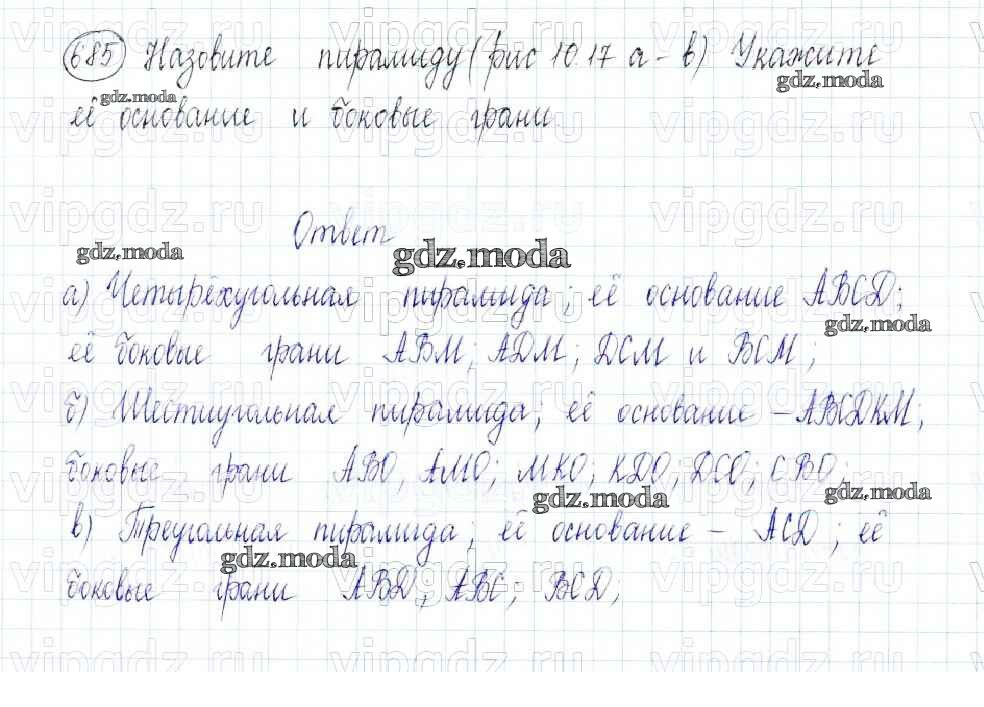 685 Назовите пирамиду (рис 10.17 а - в) Укажите
её основание и боковые грани
Ответ
а) Четырёхугольная пирамида; её основание ABCD;
её боковые грани ABM; ADM; DCM и BCM;
б) Шестиугольная пирамида; её основание - ABCDKM;
боковые грани ABO, AMO; MKO; KDO; DCO; CBO;
в) Треугольная пирамида; её основание - ACD; её
боковые грани ABD; ABC; BCD,
gdz.moda
gdz.moda
gdz.moda
gdz.moda
gdz.moda
gdz.moda
gdz.moda
gdz.moda
vipgdz.ru